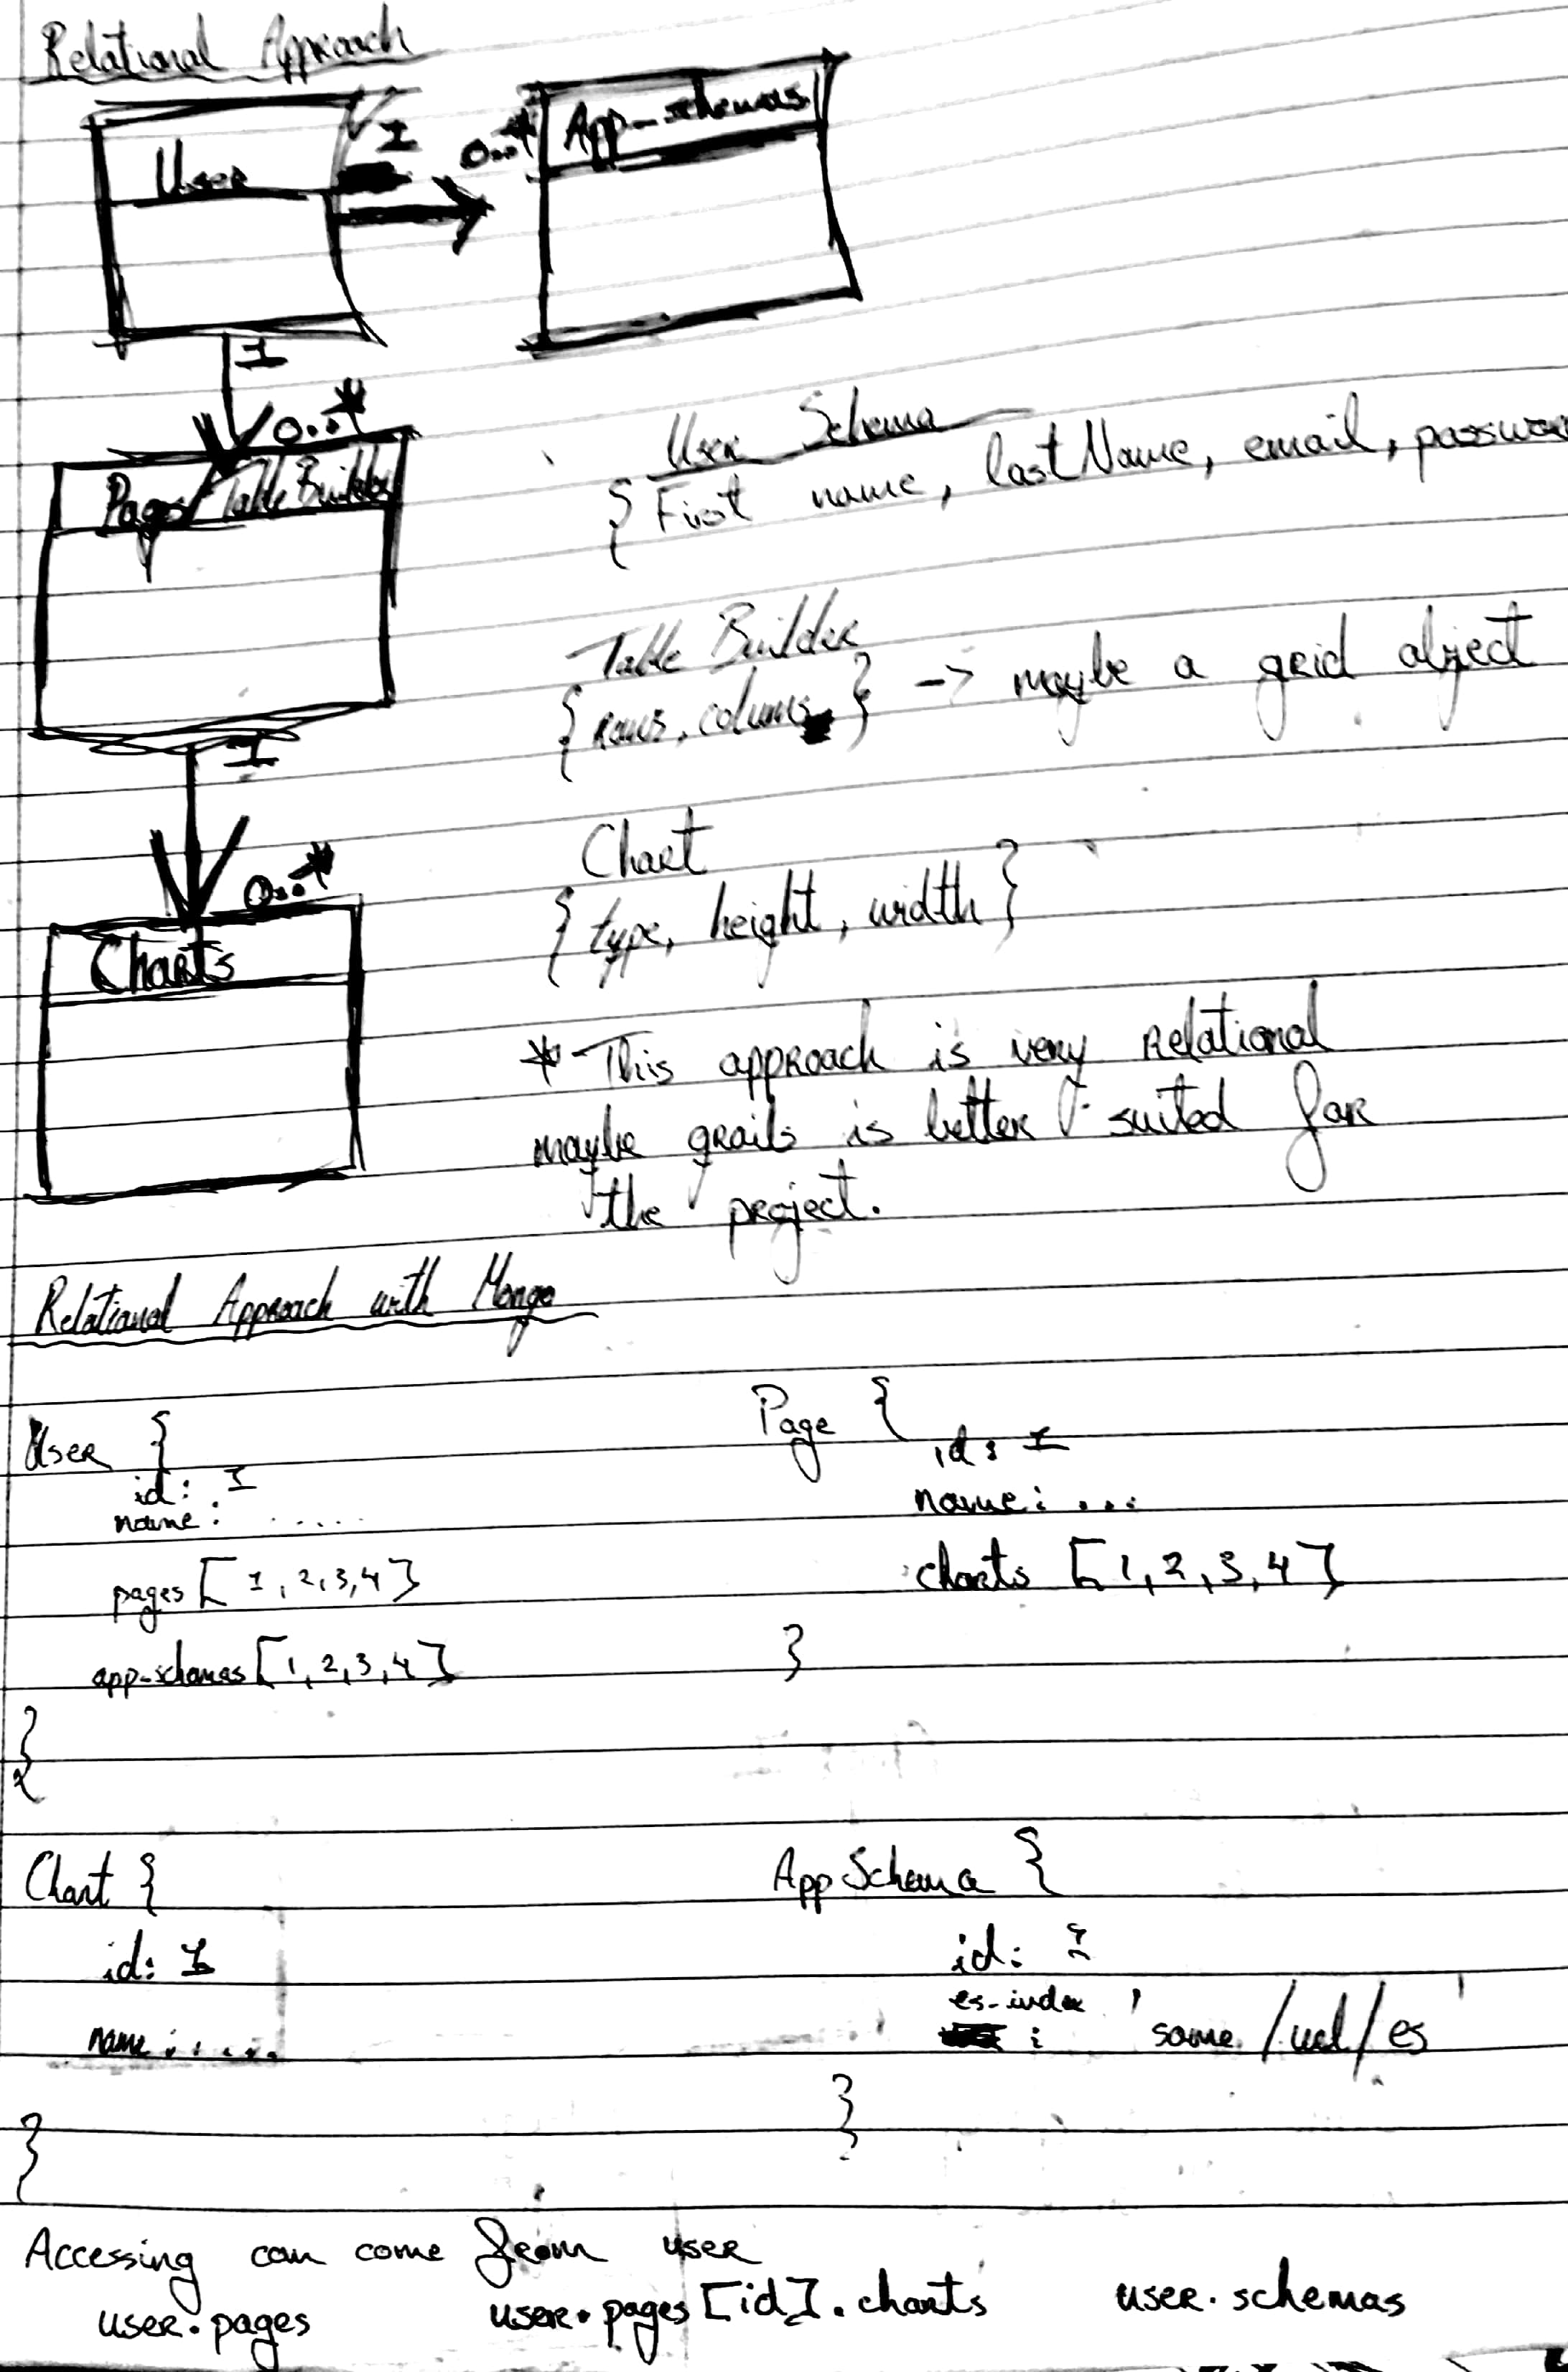 Relational Approach
User
1
0..*
App-schemas
1
0..*
Pages/Table Builder
User Schema
{ First name, lastName, email, passwo
Table Builder
{ rows, columns } -> maybe a grid object
1
0..*
Charts
Chart
{ type, height, width }
* This approach is very relational
maybe grails is better suited for
the project.
Relational Approach with Mongo
User {
id: 1
name: .....
pages [ 1, 2, 3, 4 ]
app-schemas [ 1, 2, 3, 4 ]
}
Page {
id: 1
name: ...
charts [ 1, 2, 3, 4 ]
}
Chart {
id: 1
name: ....
}
App Schema {
id:
es-index : ' some/url/es '
}
Accessing can come from user
user.pages user.pages [id].charts user.schemas